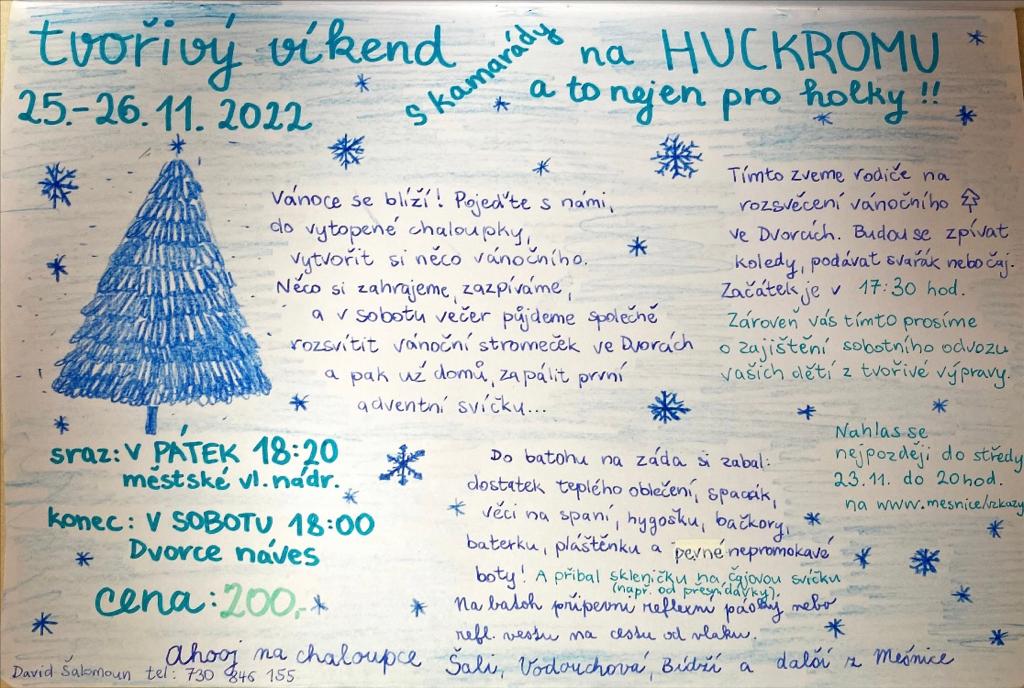 tvořivý víkend s kamarády na HUCKROMU
25.-26.11.2022 a to nejen pro holky!!
Vánoce se blíží! Pojeďte s námi,
do vytopené chaloupky,
vytvořit si něco vánočního.
Něco si zahrajeme, zazpíváme,
a v sobotu večer půjdeme společně
rozsvítit vánoční stromeček ve Dvorcích
a pak už domů, zapálit první
adventní svíčku...
Tímto zveme rodiče na
rozsvěcení vánočního
ve Dvorcích. Budou se zpívat
koledy, podávat svařák nebo čaj.
Začátek je v 17:30 hod.
Zároveň vás tímto prosíme
o zajištění sobotního odvozu
vašich dětí z tvořivé výpravy.
sraz: V PÁTEK 18:20
městské vl. nádr.
konec: V SOBOTU 18:00
Dvorce náves
cena: 200,-
Do batohu na záda si zabal:
dostatek teplého oblečení, spacák,
věci na spaní, hygošku, bačkory,
baterku, pláštěnku a pevné nepromokavé
boty! A přibal skleničku na čajovou svíčku
(např. od přesnídávky).
Na batoh připevni reflexní pásky nebo
refl. vestu na cestu od vlaku.
Nahlas se
nejpozději do středy
23.11. do 20hod.
na www.mesnice/vzkazy
Ahooj na chaloupce Šali, Vodouchová, Bídží a další z Měsnice
David Šalomoun tel: 730 846 155